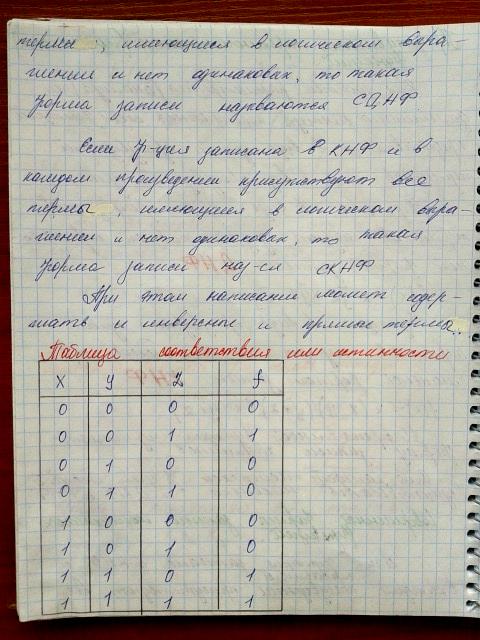 термы, имеющиеся в логическом выра-
жении и нет одинаковых, то такая
форма записи называются СДНФ
Если ф-ция записана в КНФ и в
каждом произведении присутствуют все
термы, имеющиеся в логическом выра-
жении и нет одинаковых, то такая
форма записи наз-ся СКНФ
При этом написание может содер-
жать и инверсные и прямые термы.
Таблица соответствия или истинности
X y z f
0 0 0 0
0 0 1 1
0 1 0 0
0 1 1 0
1 0 0 0
1 0 1 0
1 1 0 1
1 1 1 1